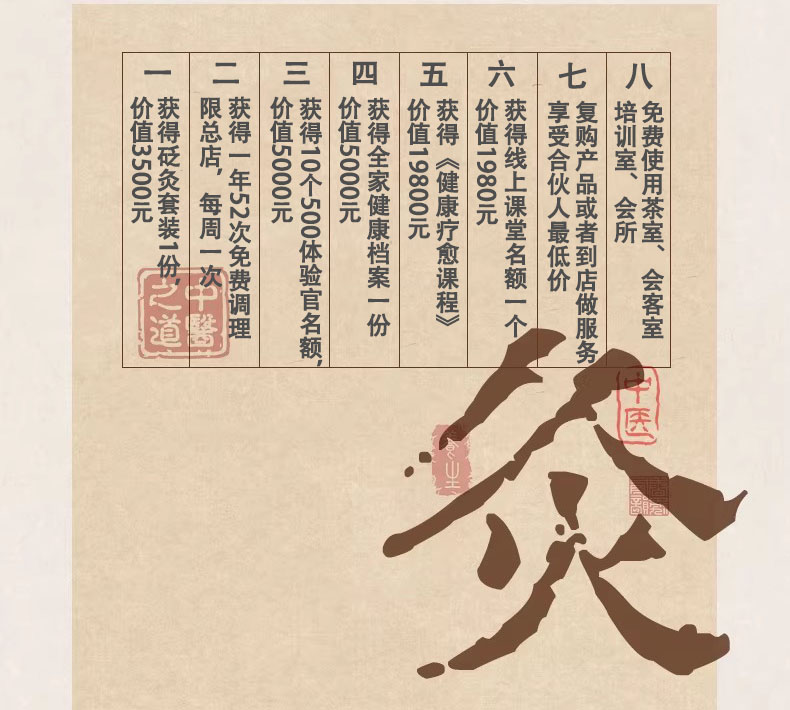 一
获得砭灸套装1份,
价值3500元
二
获得一年52次免费调理
限总店，每周一次
三
获得10个500体验官名额,
价值5000元
四
获得全家健康档案一份
价值5000元
五
获得《健康疗愈课程》
价值19800元
六
获得线上课堂名额一个
价值1980元
七
复购产品或者到店做服务
享受合伙人最低价
八
免费使用茶室、会客室
培训室、会所
中醫
之道
灸
中医